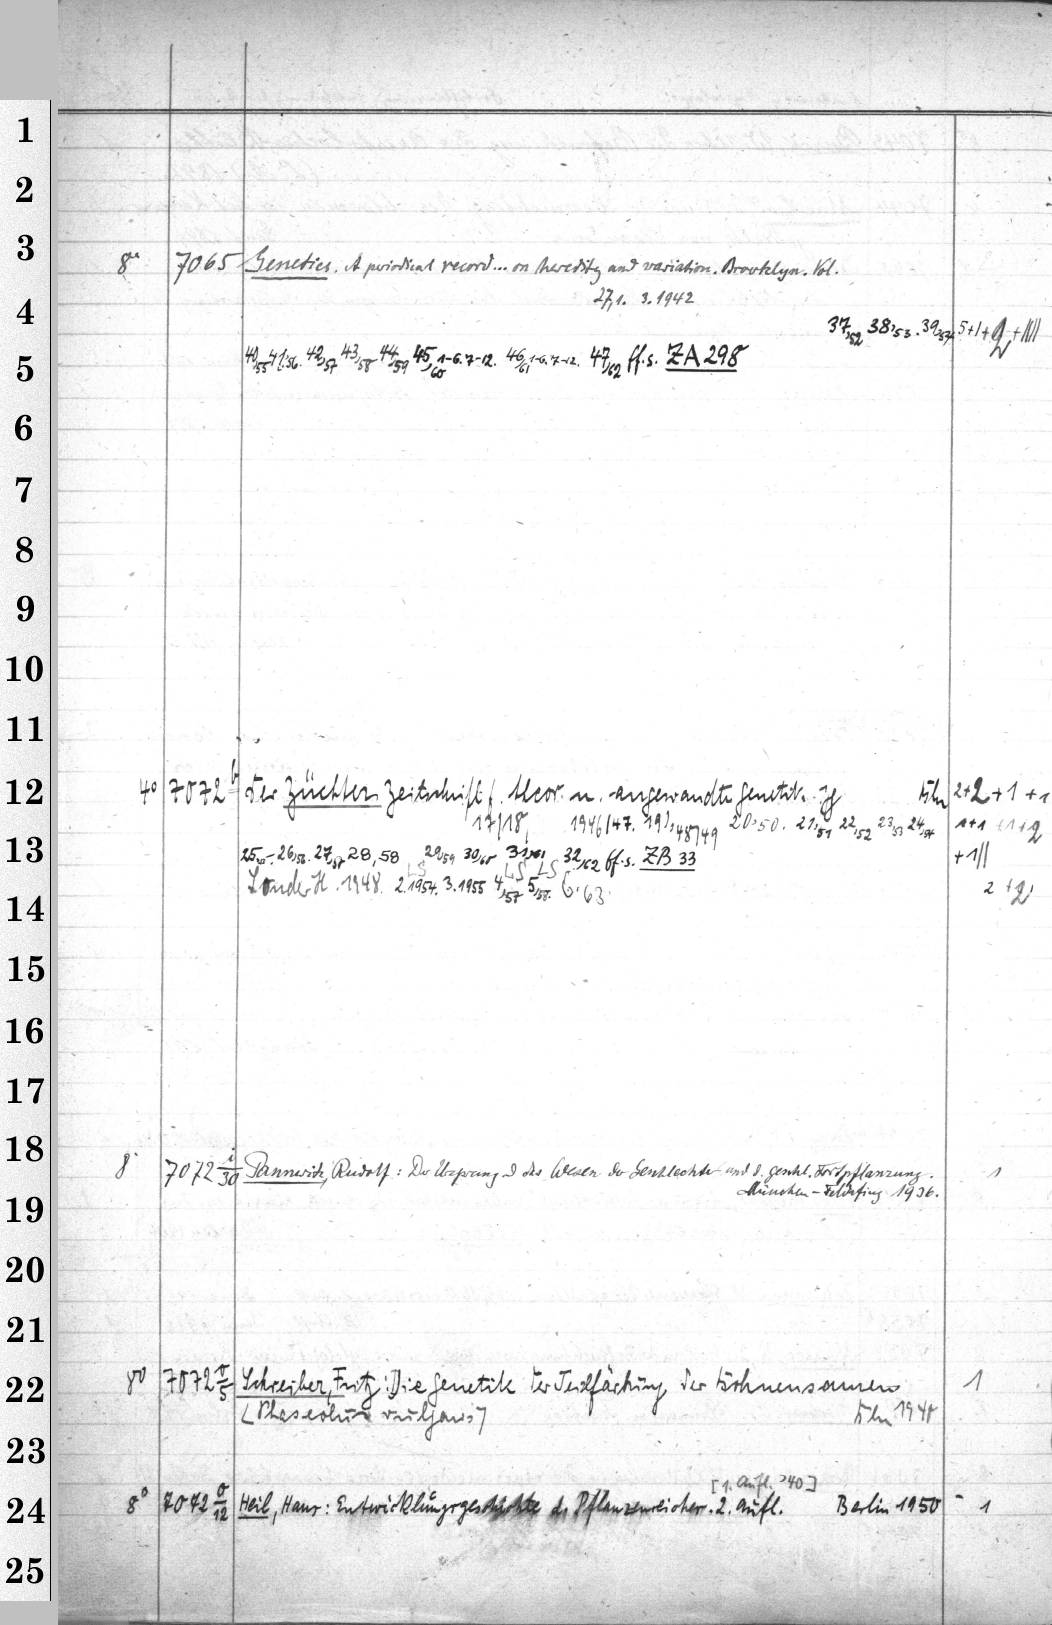 1
2
3
8° 7065 Genetics. A periodical record... on heredity and variation. Brooklyn. Vol.
27,1. 3.1942
4
37,52 38,53. 39,54 5+1+2+
5
40,55 41,56. 42,57 43,58 44,59 45,60 1-6.7-12. 46,61 1-6.7-12. 47,62 ff. s. ZA 298
6
7
8
9
10
11
12
4° 7072 b Der Züchter. Zeitschrift f. theor. u. angewandte Genetik. Jg Bln 2+2+1+1
17/18, 1946/47. 19, 48/49 20,50. 21,51 22,52 23,53 24,54 1+1+1+2
13
25, 26,56. 27,57 28,58 29,59 30,60 31,61 32,62 ff. s. ZB 33 +1
LS LS LS
SonderH. 1948. 2.1954. 3.1955 4,57 5,58. 6.63. 2+2
14
15
16
17
18
8° 7072 i/30 Pannwitz, Rudolf: Der Ursprung u. das Wesen der Geschlechter und d. geschl. Fortpflanzung. 1
München-Feldafing 1936.
19
20
21
22
8° 7072 o/5 Schreiber, Fritz: Die Genetik der Teilfärbung der Bohnensamen 1
(Phaseolus vulgaris) Bln 1940
23
[1. Aufl. '40]
24
8° 7072 o/12 Heil, Hans: Entwicklungsgeschichte des Pflanzenreiches. 2. Aufl. Berlin 1950 - 1
25